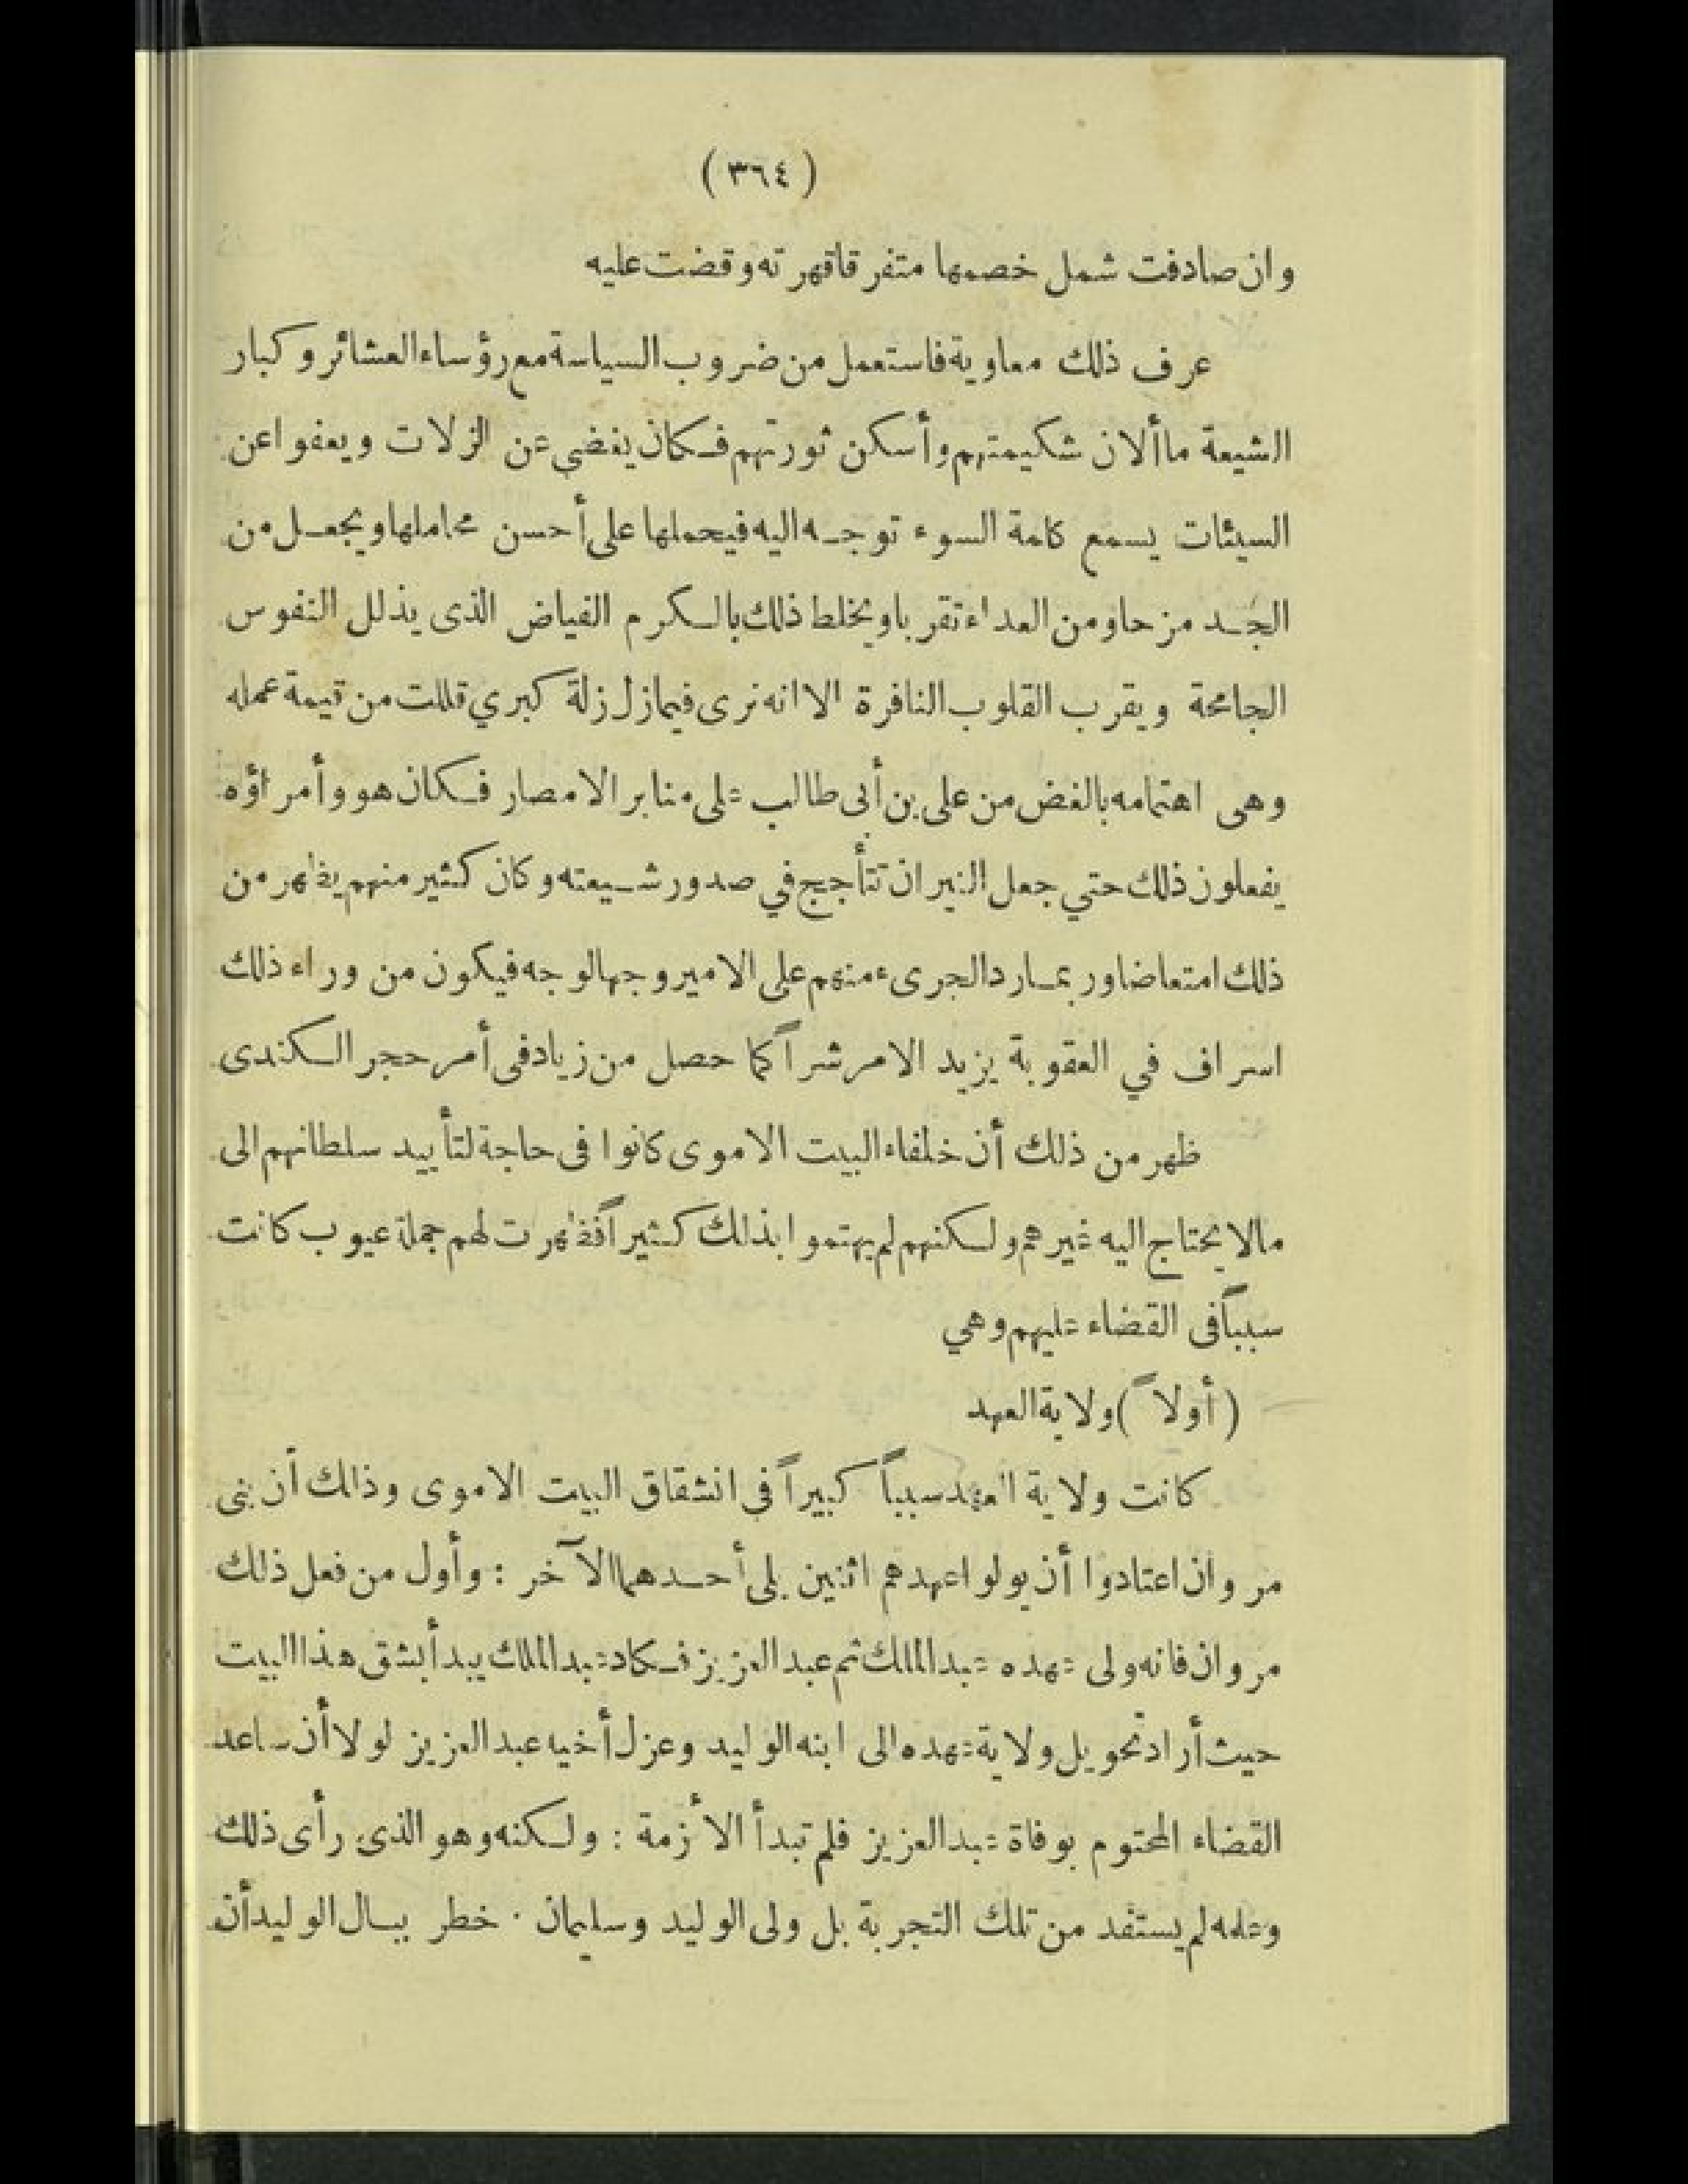 ( ٣٦٤ )
وان صادفت شمل خصمها متفرقا قهرته وقضت عليه
عرف ذلك معاوية فاستعمل من ضروب السياسة مع رؤساء العشائر وكبار
الشيعة ما ألان شكيمتهم وأسكن ثورتهم فكان يغضى عن الزلات ويعفوا عن
السيئات يسمع كلمة السوء توجه اليه فيحملها على أحسن محاملها ويجعل من
الجد مزحا ومن العداء تقربا ويخلط ذلك بالكرم الفياض الذى يذلل النفوس
الجامحة ويقرب القلوب النافرة الا انه نرى فيما زل زلة كبري قللت من قيمة عمله
وهى اهتمامه بالغض من على بن أبى طالب على منابر الامصار فكان هو وأمراؤه
يفعلون ذلك حتي جعل النيران تتأجج في صدور شيعته وكان كثير منهم يظهر من
ذلك امتعاضا وربما رد الجرىء منهم على الامير وجها لوجه فيكون من وراء ذلك
اسراف في العقوبة يزيد الامر شراً كما حصل من زياد فى أمر حجر الكندى
ظهر من ذلك أن خلفاء البيت الاموى كانوا فى حاجة لتأييد سلطانهم الى
مالا يحتاج اليه غيرهم ولكنهم لم يهتموا بذلك كثيراً فظهرت لهم جملة عيوب كانت
سبباً فى القضاء عليهم وهي
( أولاً ) ولاية العهد
كانت ولاية العهد سبباً كبيراً فى انشقاق البيت الاموى وذالك أن بنى
مروان اعتادوا أن يولوا عهدهم اثنين يلى أحدهما الآخر : وأول من فعل ذلك
مروان فانه ولى عهده عبد الملك ثم عبد العزيز فكاد عبد الملك يبدأ بشق هذا البيت
حيث أراد تحويل ولاية عهده الى ابنه الوليد وعزل أخيه عبد العزيز لولا أن ساعد
القضاء المحتوم بوفاة عبد العزيز فلم تبدأ الأزمة : ولكنه وهو الذى رأى ذلك
وعلمه لم يستفد من تلك التجربة بل ولى الوليد وسليمان · خطر ببال الوليد أن